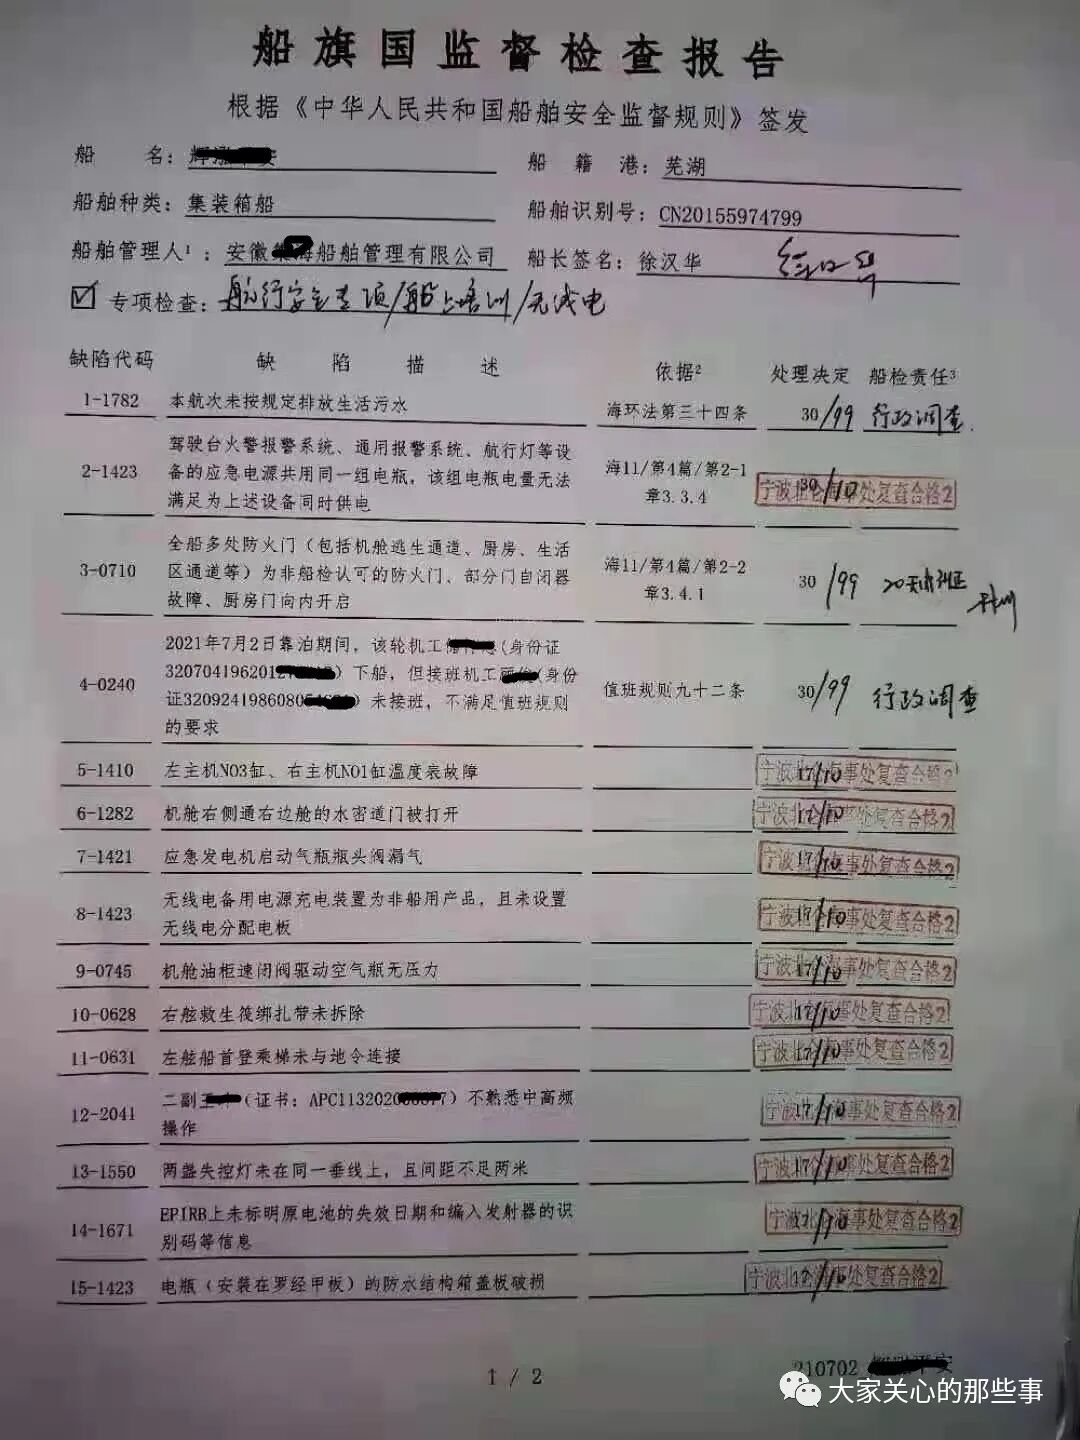 船旗国监督检查报告
根据《中华人民共和国船舶安全监督规则》签发
船 名：
船 籍 港：芜湖
船舶种类：集装箱船
船舶识别号：CN20155974799
船舶管理人1：安徽 船舶管理有限公司
船长签名：徐汉华
☑ 专项检查：航行安全专项/船上培训/无线电
缺陷代码 缺 陷 描 述 依据2 处理决定 船检责任3
1-1782 本航次未按规定排放生活污水 海环法第三十四条 30/99 行政调查
驾驶台火警报警系统、通用报警系统、航行灯等设
2-1423 备的应急电源共用同一组电瓶，该组电瓶电量无法 海11/第4篇/第2-1
满足为上述设备同时供电 章3.3.4 30/10 宁波北仑海事处复查合格2
全船多处防火门（包括机舱逃生通道、厨房、生活
3-0710 区通道等）为非船检认可的防火门、部分门自闭器 海11/第4篇/第2-2 30/99
故障、厨房门向内开启 章3.4.1
2021年7月2日靠泊期间，该轮机工 (身份证
4-0240 3207041962012 ）下船，但接班机工 (身份 值班规则九十二条 30/99 行政调查
证320924198608 ）未接班，不满足值班规则
的要求
5-1410 左主机NO3缸、右主机NO1缸温度表故障 17/10 宁波北仑海事处复查合格2
6-1282 机舱右侧通右边舱的水密道门被打开 17/10 宁波北仑海事处复查合格2
7-1421 应急发电机启动气瓶瓶头阀漏气 17/10 宁波北仑海事处复查合格2
无线电备用电源充电装置为非船用产品，且未设置
8-1423 无线电分配电板 17/10 宁波北仑海事处复查合格2
9-0745 机舱油柜速闭阀驱动空气瓶无压力 17/10 宁波北仑海事处复查合格2
10-0628 右舷救生筏绑扎带未拆除 17/10 宁波北仑海事处复查合格2
11-0631 左舷船首登乘梯未与地令连接 17/10 宁波北仑海事处复查合格2
二副 （证书：APC113202 ）不熟悉中高频
12-2041 操作 17/10 宁波北仑海事处复查合格2
13-1550 两盏失控灯未在同一垂线上，且间距不足两米 17/10 宁波北仑海事处复查合格2
EPIRB上未标明原电池的失效日期和编入发射器的识
14-1671 别码等信息 宁波北仑海事处复查合格2
15-1423 电瓶（安装在罗经甲板）的防水结构箱盖板破损 宁波北仑海事处复查合格2
1 / 2
210702
大家关心的那些事